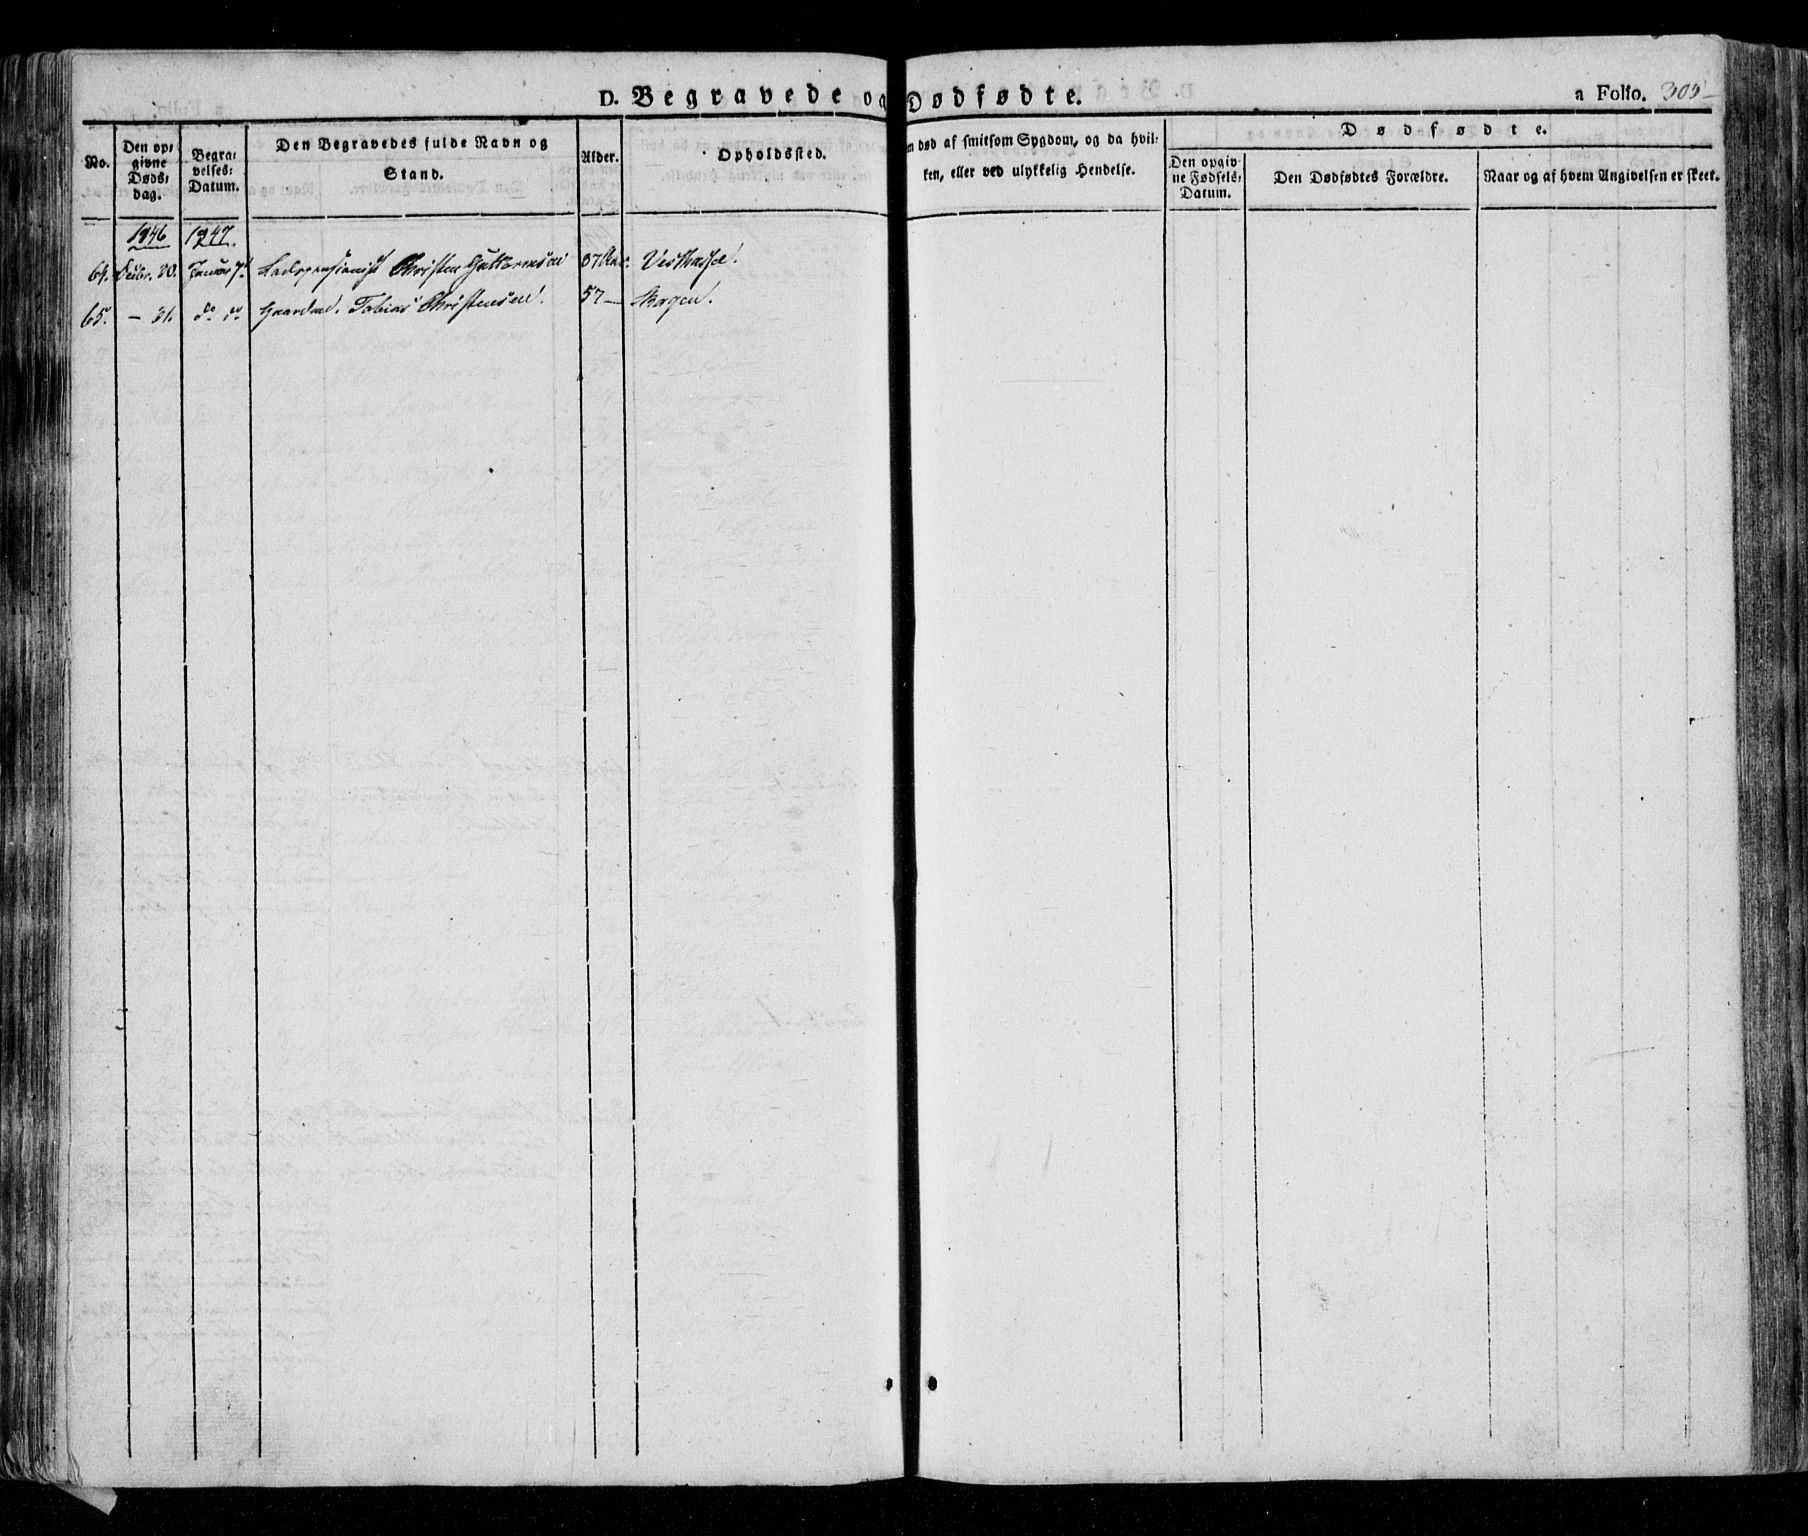 D. Begravede og Dødfødte.
a Folio. 305
No.
Den op=
givne
Døds=
dag.
Begra=
velses=
Datum.
Den Begravedes fulde Navn og
Stand.
Alder.
Opholdssted.
m død af smitsom Sygdom, og da hvil=
ken, eller ved ulykkelig Hendelse.
Dødfødte.
Den opgiv=
ne Fødsels=
Datum.
Den Dødfødtes Forældre.
Naar og af hvem Angivelsen er skeet.
1846 1847.
64. Decbr. 30. Januar 7d Christen Guttormsen Aar. Vesthassel.
65. — 31. do do Gaardm. Tobias Christensen. 57 — Skagen.